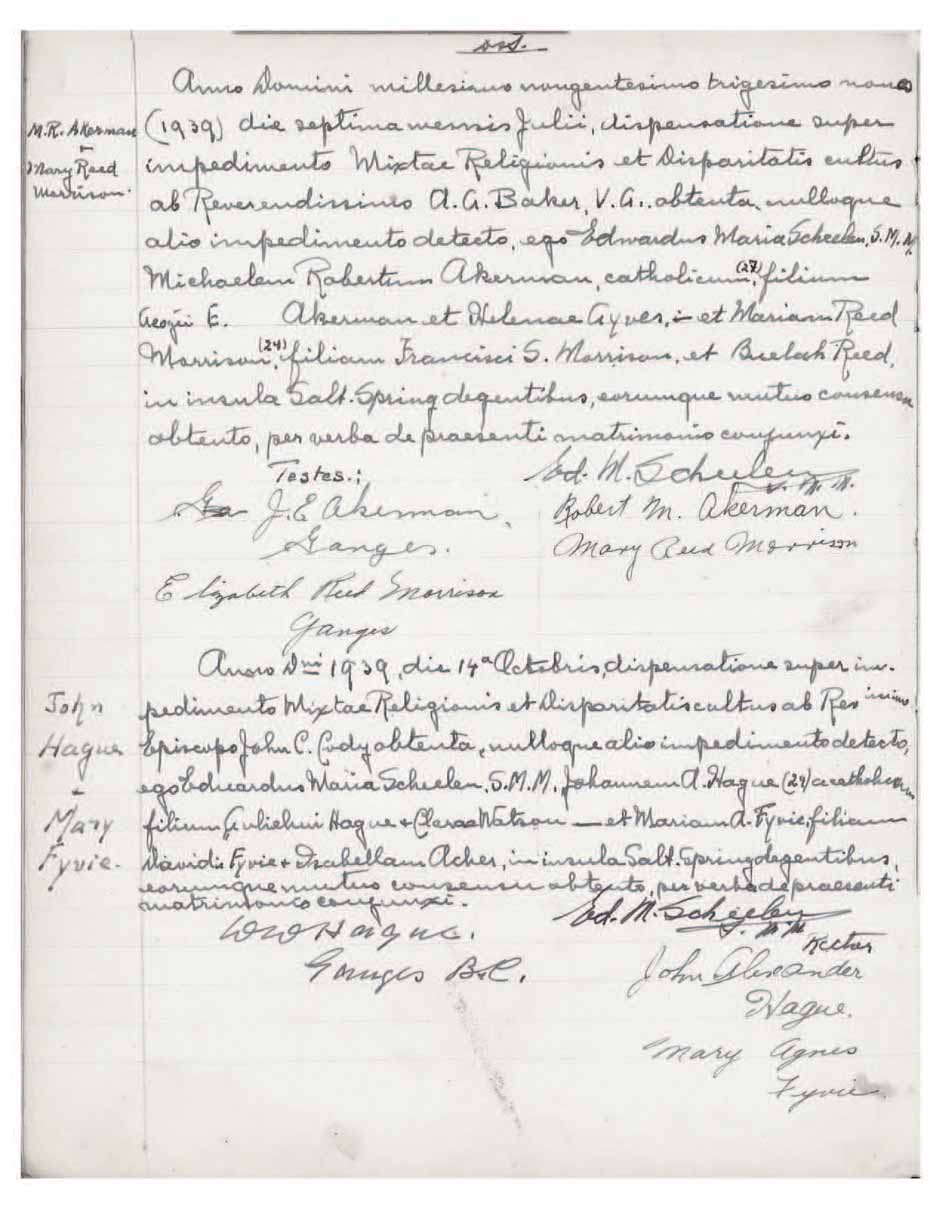 Anno Domini millesimo nongentesimo trigesimo nono
M.R. Akerman
+
Mary Reed
Morrison.
(1939) die septima mensis Julii, dispensatione super
impedimento Mixtae Religionis et Disparitatis cultus
ab Reverendissimo A.G. Baker, V.G., obtenta, nulloque
alio impedimento detecto, ego Edwardus Maria Scheelen, S.M.M.
Michaelem Robertum Akerman, catholicum, (27) filium
Georgii E. Akerman et Helenae Gyves, - et Mariam Reed
Morrison, (24) filiam Francisci S. Morrison, et Buelah Reed,
in insula Salt-Spring degentibus, eorumque mutuo consensu
obtento, per verba de praesenti matrimonio conjunxi.
Testes:
Ed. M. Scheelen
S. M. M.
J.E. Akerman.
Robert M. Akerman.
Ganges.
Mary Reed Morrison
Elizabeth Reed Morrison
Ganges
John
Hague
+
Mary
Fyvie.
Anno Dni 1939, die 14a Octobris, dispensatione super im-
pedimento Mixtae Religionis et Disparitatis cultus ab Res issimo
Episcopo John C. Cody obtenta, nulloque alio impedimento detecto,
ego Eduardus Maria Scheelen, S.M.M. Johannem A. Hague (29) acatholicum
filium Gulielmi Hague + Clarae Watson — et Mariam A. Fyvie, filiam
Davidis Fyvie + Isabellam Acher, in insula Salt-Spring degentibus,
eorumque mutuo consensu obtento, per verba de praesenti
matrimonio conjunxi.
Ed. M. Scheelen
S. M. M.
Rector
W W Hague.
Ganges B.C.
John Alexander
Hague.
Mary Agnes
Fyvie.